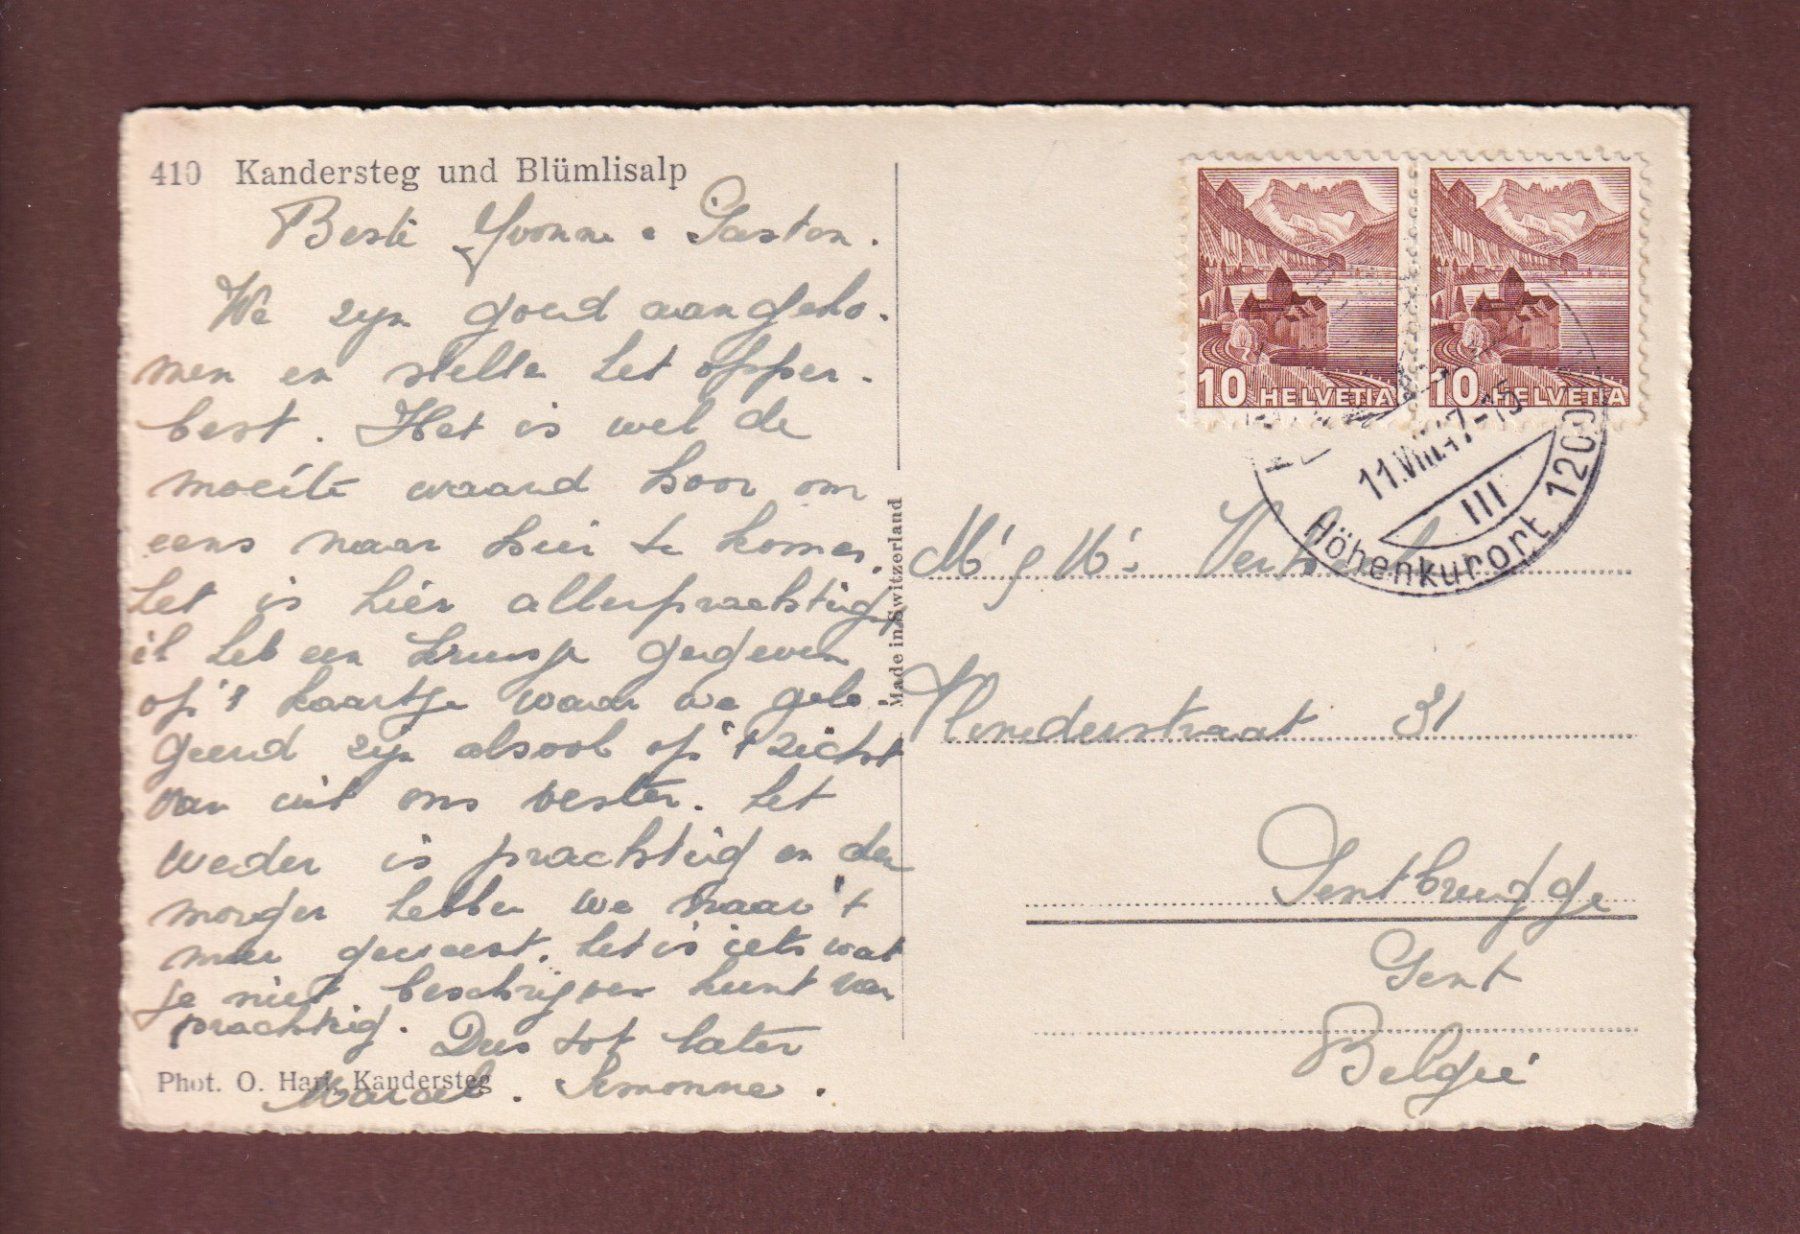 410 Kandersteg und Blümlisalp
Beste Yvonne & Gaston.
We zyn goed aangeko-
men en stellen het opper-
best. Het is wel de
moeite waard hoor om
eens naar hier te komen.
het is hier allerprachtigst
ik heb een kruisje gegeven
op 't kaartje waar we gelo-
geerd zyn alsook op 't zicht
van uit ons venster. het
weder is prachtig en den
morgen hebben we naar 't
meer geweest. het is iets wat
je niet beschrijven kunt van
prachtig. Dus tot later
Marcel. Simonne.
Phot. O. Hari, Kandersteg
Made in Switzerland
10 HELVETIA
10 HELVETIA
11.VIII.47-15
III
Höhenkurort 1200
Mr & Mr
31
Gentbrugge
Gent
België